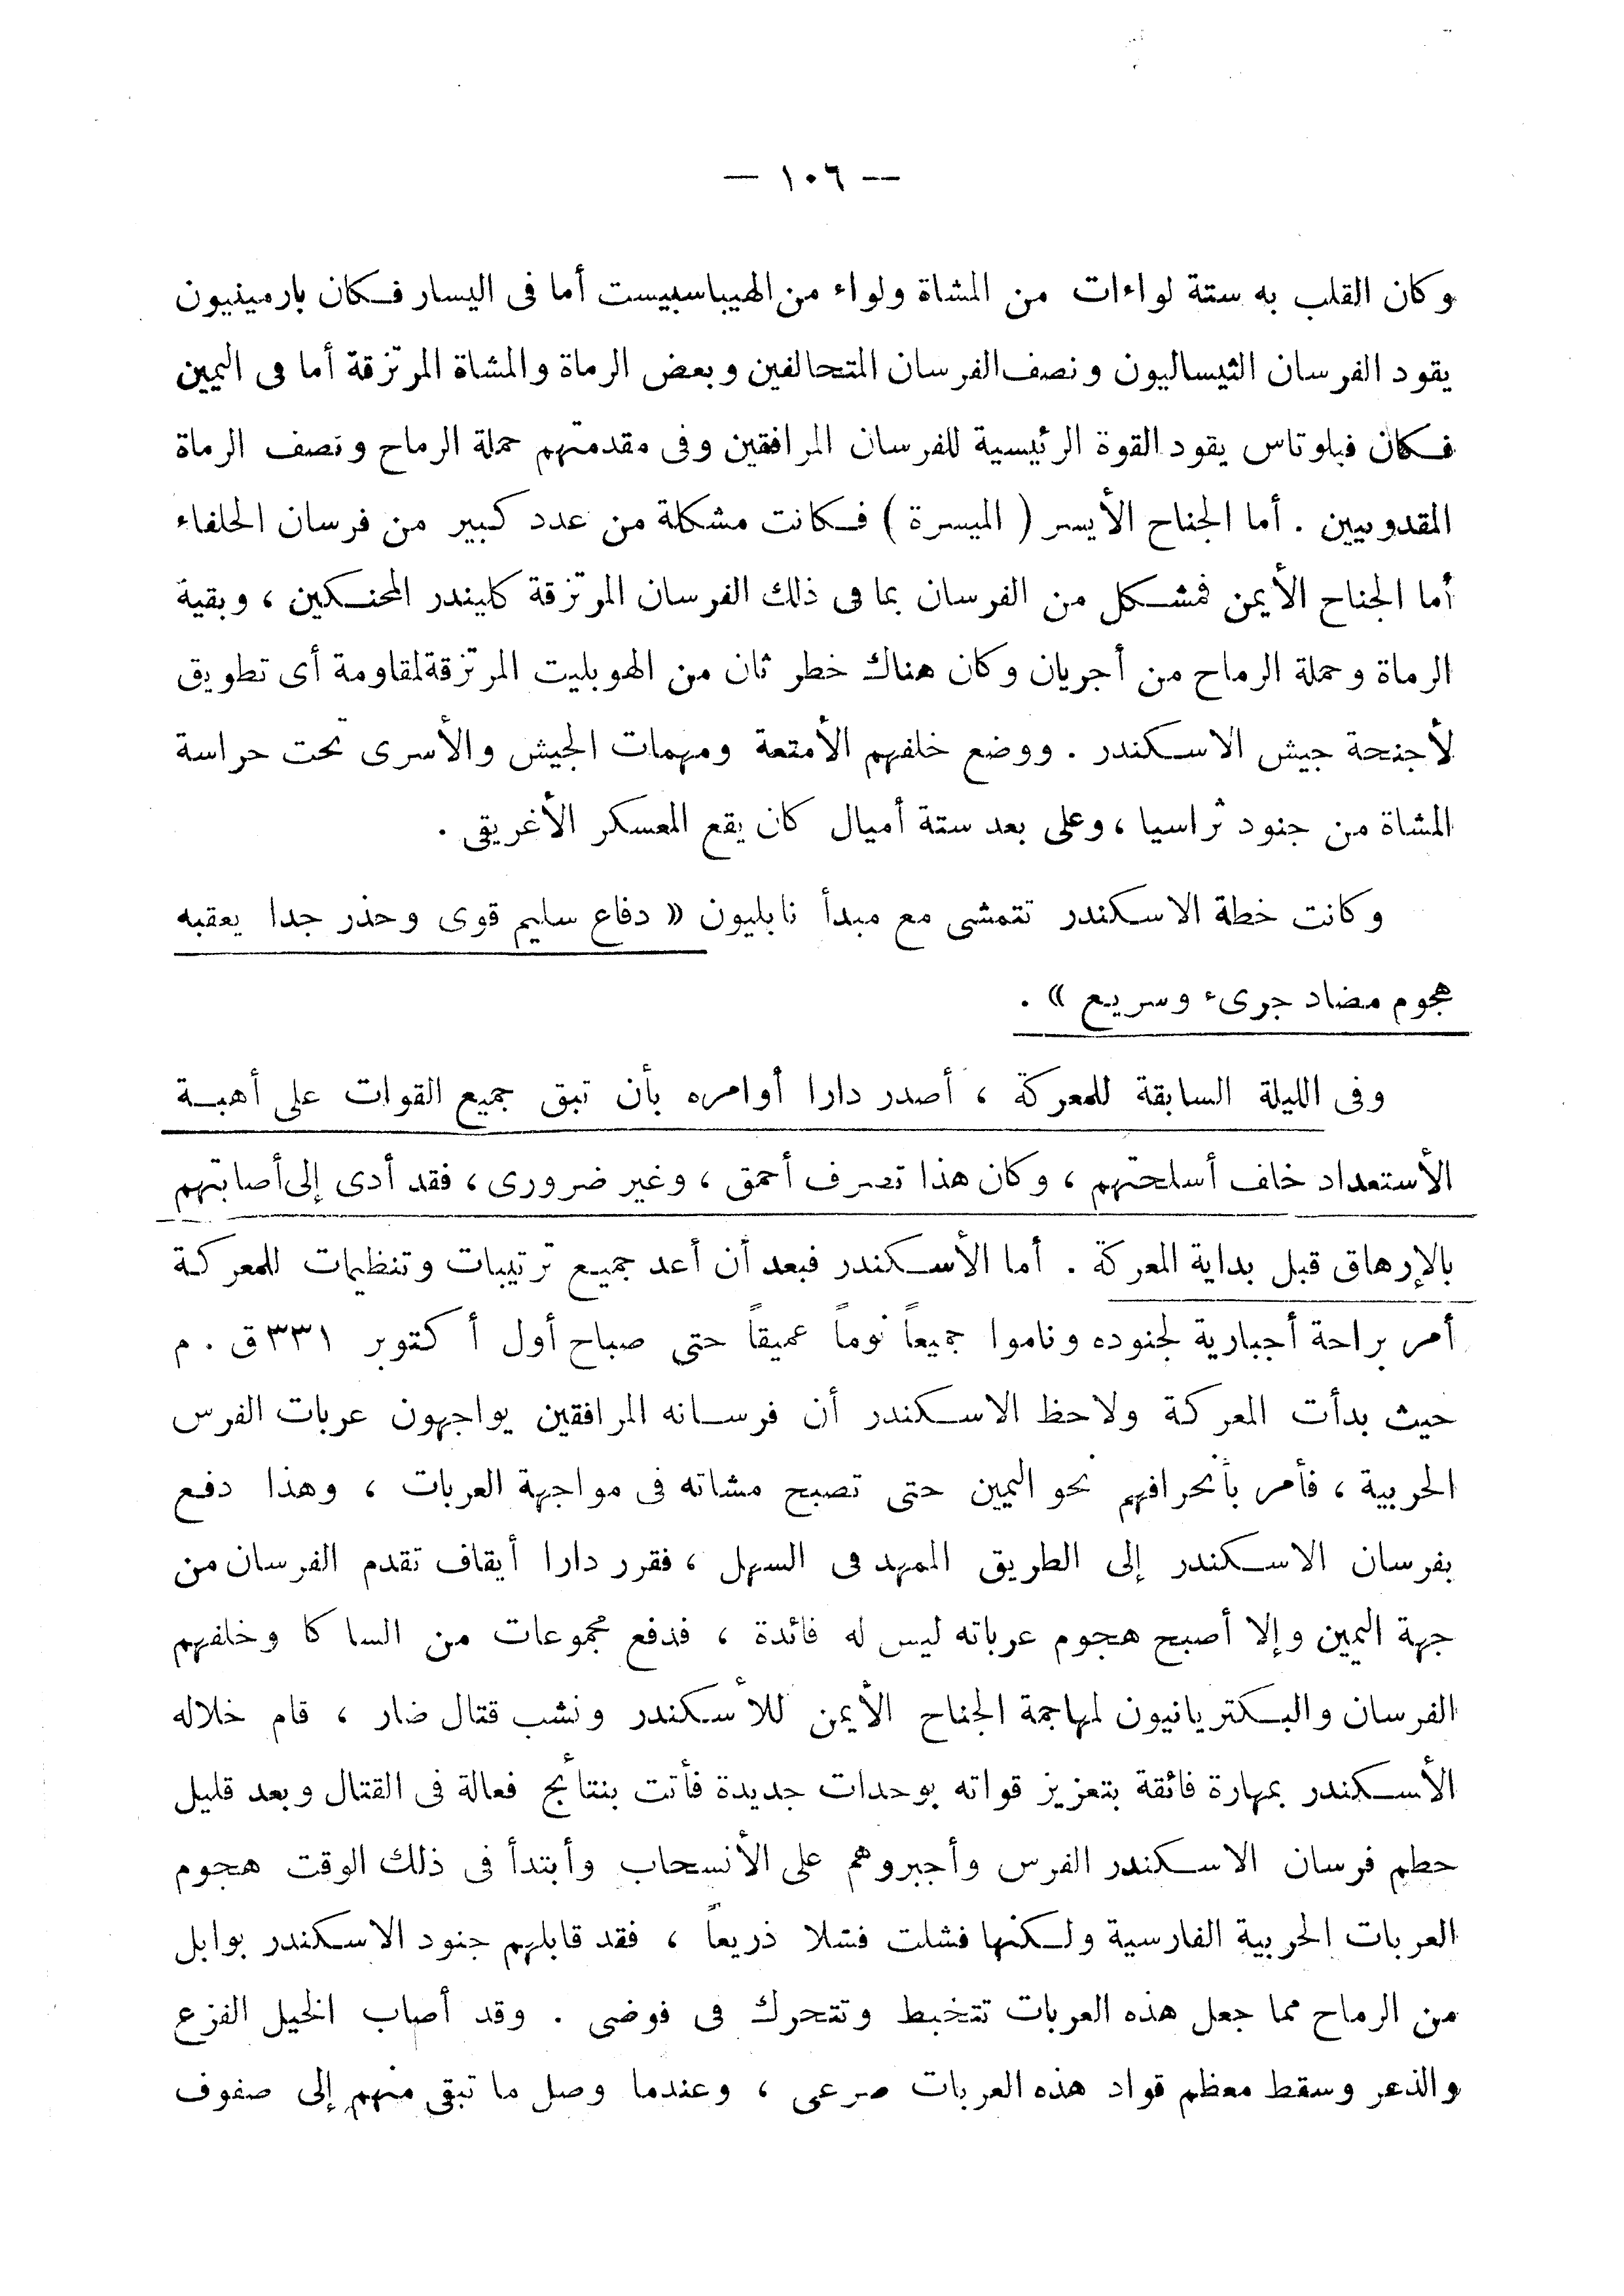 — ١٠٦ —
وكان القلب به ستة لواءات من المشاة ولواء من الهيباسبيست أما فى اليسار فكان بارمينيون
يقود الفرسان الثيساليون ونصف الفرسان المتحالفين وبعض الرماة والمشاة المرتزقة أما فى اليمين
فكان فيلوتاس يقود القوة الرئيسية للفرسان المرافقين وفى مقدمتهم حملة الرماح ونصف الرماة
المقدونيين . أما الجناح الأيسر ( الميسرة ) فكانت مشكلة من عدد كبير من فرسان الحلفاء
أما الجناح الأيمن فمشكل من الفرسان بما فى ذلك الفرسان المرتزقة كليندر المحنكين ، وبقية
الرماة وحملة الرماح من أجريان وكان هناك خطر ثان من الهوبليت المرتزقة لمقاومة أى تطويق
لأجنحة جيش الاسكندر . ووضع خلفهم الأمتعة ومهمات الجيش والأسرى تحت حراسة
المشاة من جنود ثراسيا ، وعلى بعد ستة أميال كان يقع المعسكر الأغريقى .
وكانت خطة الاسكندر تتمشى مع مبدأ نابليون « دفاع سليم قوى وحذر جدا يعقبه
هجوم مضاد جرىء وسريع » .
وفى الليلة السابقة للمعركة ، أصدر دارا أوامره بأن تبق جميع القوات على أهبة
الأستعداد خلف أسلحتهم ، وكان هذا تصرف أحمق ، وغير ضرورى ، فقد أدى إلى أصابتهم
بالإرهاق قبل بداية المعركة . أما الأسكندر فبعد أن أعد جميع ترتيبات وتنظيمات للمعركة
أمر براحة أجبارية لجنوده وناموا جميعاً نوماً عميقاً حتى صباح أول أكتوبر ٣٣١ ق . م
حيث بدأت المعركة ولاحظ الاسكندر أن فرسانه المرافقين يواجهون عربات الفرس
الحربية ، فأمر بأنحرافهم نحو اليمين حتى تصبح مشاته فى مواجهة العربات ، وهذا دفع
بفرسان الاسكندر إلى الطريق الممهد فى السهل ، فقرر دارا أيقاف تقدم الفرسان من
جهة اليمين وإلا أصبح هجوم عرباته ليس له فائدة ، فدفع مجموعات من الساكا وخلفهم
الفرسان والبكتريانيون لمهاجمة الجناح الأيمن للأسكندر ونشب قتال ضار ، قام خلاله
الأسكندر بمهارة فائقة بتعزيز قواته بوحدات جديدة فأتت بنتائج فعالة فى القتال وبعد قليل
حطم فرسان الاسكندر الفرس وأجبروهم على الأنسحاب وأبتدأ فى ذلك الوقت هجوم
العربات الحربية الفارسية ولكنها فشلت فشلا ذريعاً ، فقد قابلهم جنود الاسكندر بوابل
من الرماح مما جعل هذه العربات تتخبط وتتحرك فى فوضى . وقد أصاب الخيل الفزع
والذعر وسقط معظم قواد هذه العربات صرعى ، وعندما وصل ما تبقى منهم إلى صفوف